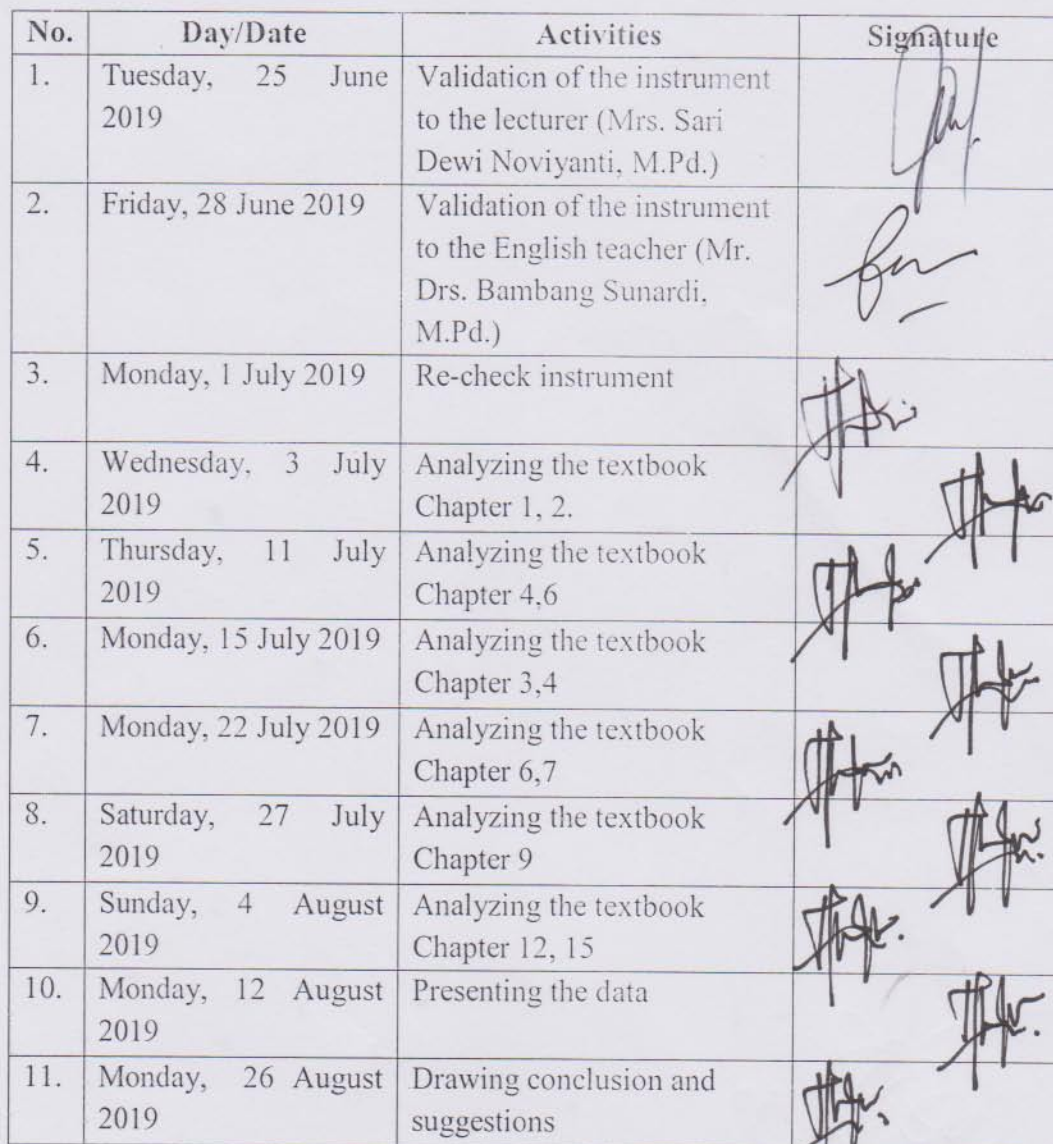 No. Day/Date Activities Signature
1. Tuesday, 25 June Validation of the instrument
2019 to the lecturer (Mrs. Sari
Dewi Noviyanti, M.Pd.)
2. Friday, 28 June 2019 Validation of the instrument
to the English teacher (Mr.
Drs. Bambang Sunardi,
M.Pd.)
3. Monday, 1 July 2019 Re-check instrument
4. Wednesday, 3 July Analyzing the textbook
2019 Chapter 1, 2.
5. Thursday, 11 July Analyzing the textbook
2019 Chapter 4,6
6. Monday, 15 July 2019 Analyzing the textbook
Chapter 3,4
7. Monday, 22 July 2019 Analyzing the textbook
Chapter 6,7
8. Saturday, 27 July Analyzing the textbook
2019 Chapter 9
9. Sunday, 4 August Analyzing the textbook
2019 Chapter 12, 15
10. Monday, 12 August Presenting the data
2019
11. Monday, 26 August Drawing conclusion and
2019 suggestions